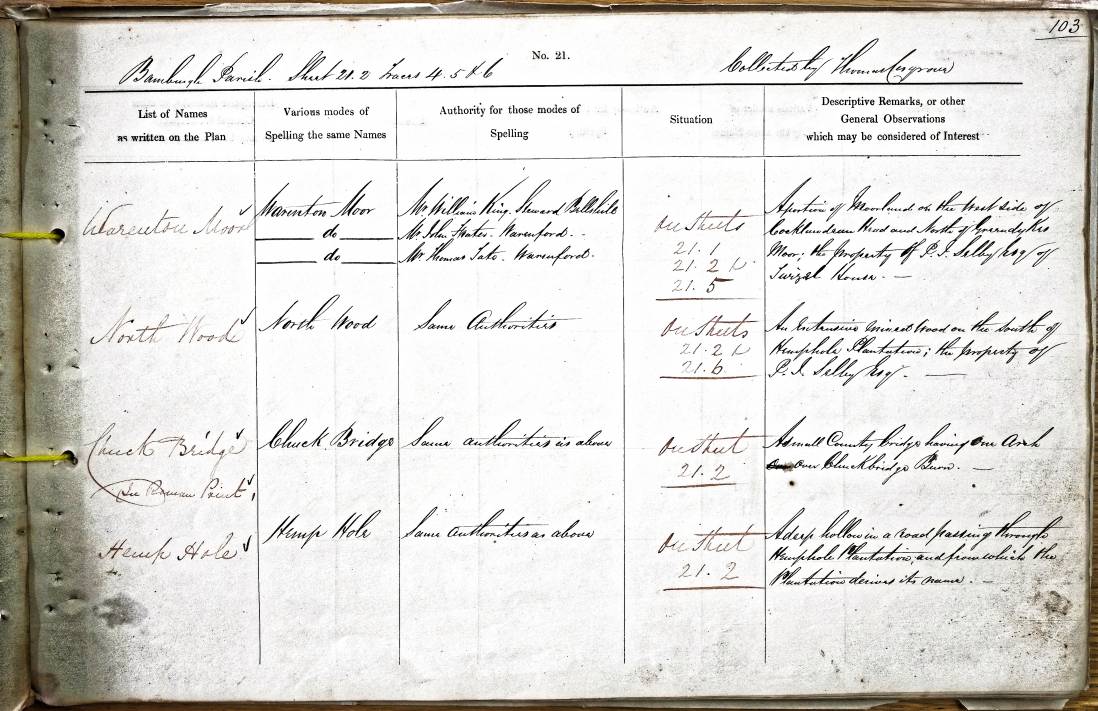 103
No. 21.
Bamburgh Parish. Sheet 21.2 Traces 4. 5 & 6
Collected by Thomas Cosgrove
List of Names
as written on the Plan
Various modes of
Spelling the same Names
Authority for those modes of
Spelling
Situation
Descriptive Remarks, or other
General Observations
which may be considered of Interest
Warenton Moor
Warenton Moor
do
do
Mr. William King. Steward Bellshill
Mr. John Warenford.
Mr. Thomas Tate. Warenford.
On Sheets
21.1
21.2
21.5
A portion of Moorland on the West side of
Cocklawdean Head and North of
Moor; the property of P. J. Selby Esq of
Twizel House. —
North Wood
North Wood
Same Authorities
On Sheets
21.2
21.6
An Extensive mixed Wood on the South of
Hemphole Plantation; the property of
P. J. Selby Esq. —
Chuck Bridge
In Roman Print
Chuck Bridge
Same authorities as above
On Sheet
21.2
A small County bridge having one Arch
over Chuckbridge Burn. —
Hemp Hole
Hemp Hole
Same authorities as above
On Sheet
21.2
A deep hollow in a road passing through
Hemphole Plantation, and from which the
Plantation derives its name. —